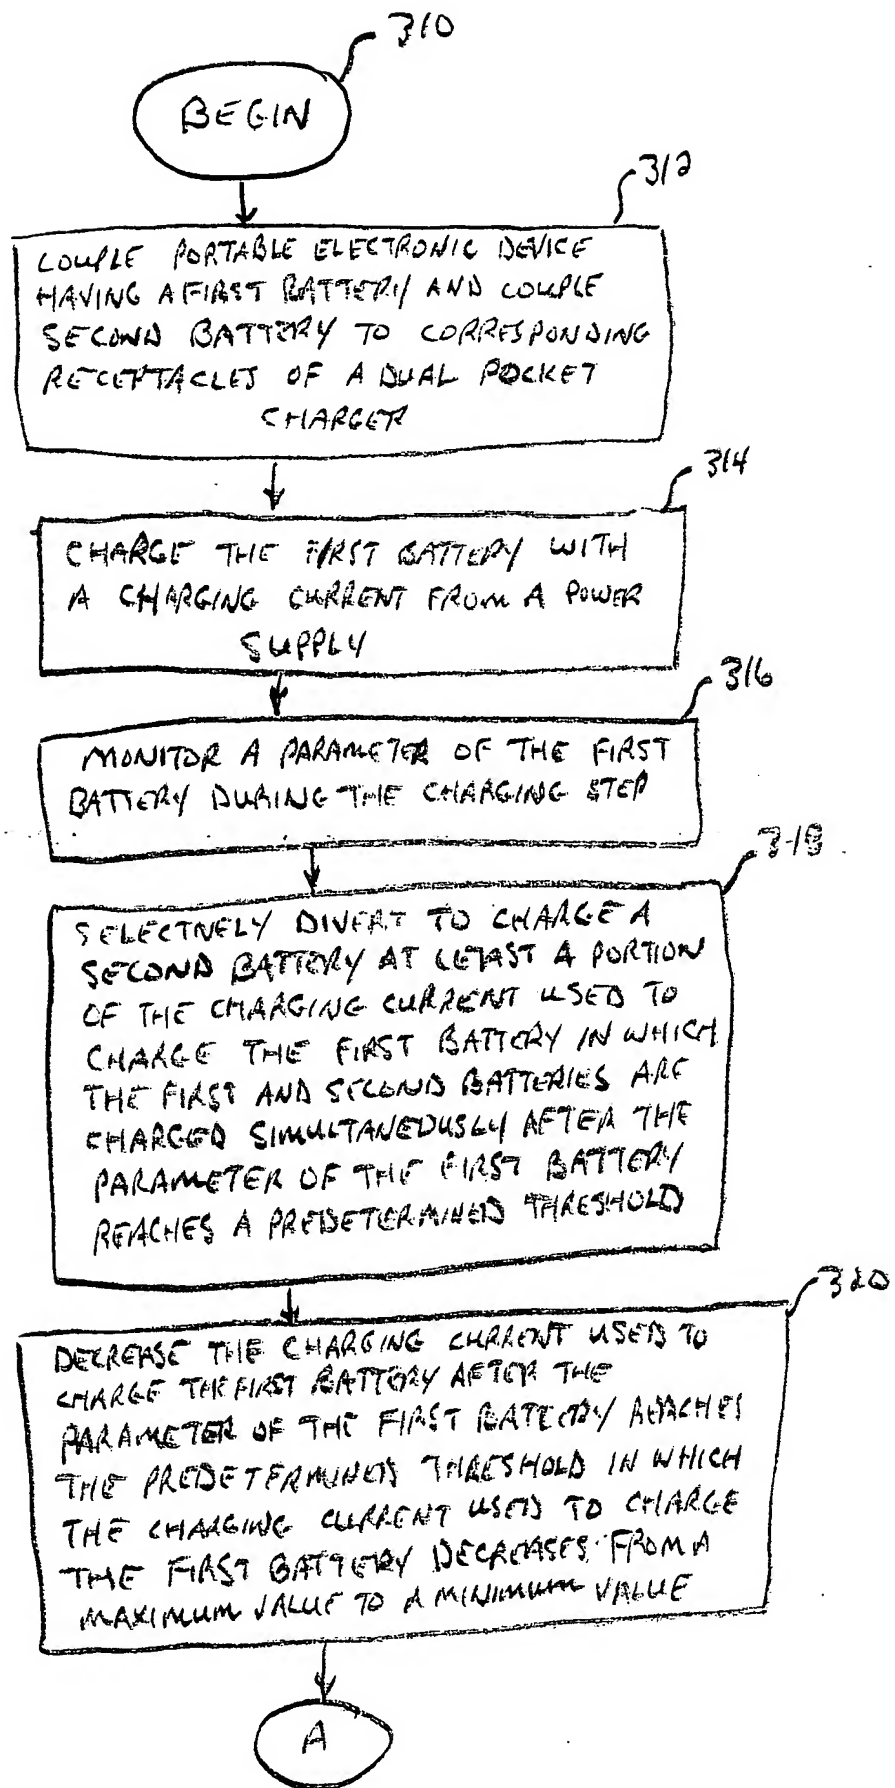 310
BEGIN
312
COUPLE PORTABLE ELECTRONIC DEVICE
HAVING A FIRST BATTERY AND COUPLE
SECOND BATTERY TO CORRESPONDING
RECEPTACLES OF A DUAL POCKET
CHARGER
314
CHARGE THE FIRST BATTERY WITH
A CHARGING CURRENT FROM A POWER
SUPPLY
316
MONITOR A PARAMETER OF THE FIRST
BATTERY DURING THE CHARGING STEP
318
SELECTIVELY DIVERT TO CHARGE A
SECOND BATTERY AT LEAST A PORTION
OF THE CHARGING CURRENT USED TO
CHARGE THE FIRST BATTERY IN WHICH
THE FIRST AND SECOND BATTERIES ARE
CHARGED SIMULTANEOUSLY AFTER THE
PARAMETER OF THE FIRST BATTERY
REACHES A PREDETERMINED THRESHOLD
320
DECREASE THE CHARGING CURRENT USED TO
CHARGE THE FIRST BATTERY AFTER THE
PARAMETER OF THE FIRST BATTERY REACHES
THE PREDETERMINED THRESHOLD IN WHICH
THE CHARGING CURRENT USED TO CHARGE
THE FIRST BATTERY DECREASES FROM A
MAXIMUM VALUE TO A MINIMUM VALUE
A